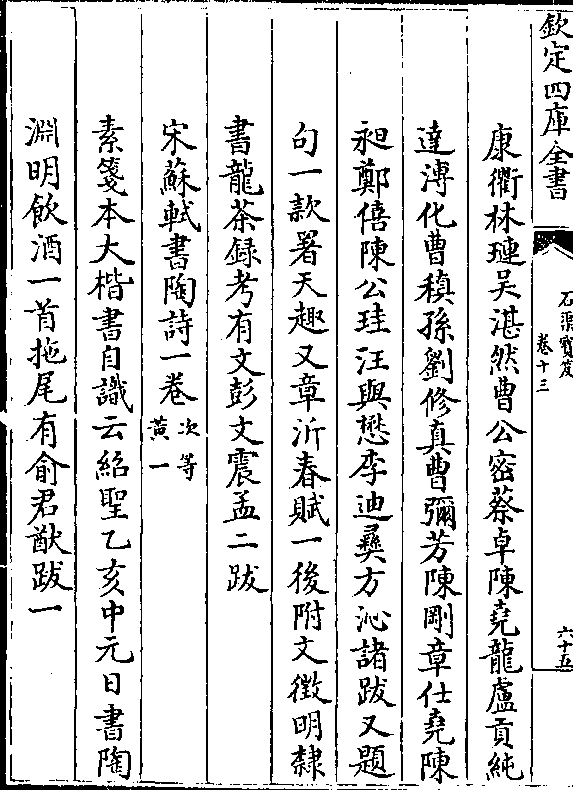 欽定四庫全書
石渠寳笈
卷十三
六十五
康衢林璉吴湛然曹公密蔡卓陳堯龍盧貢純
達溥化曹稹孫劉修真曹彌芳陳剛章仕堯陳
昶鄭僖陳公珪汪與懋李迪彛方沁諸跋又題
句一款署天趣又章沂春賦一後附文徵明隸
書龍茶録考有文彭文震孟二跋
宋蘇軾書陶詩一卷次等
黄一
素箋本大楷書自識云紹聖乙亥中元日書陶
淵明飲酒一首拖尾有俞君猷跋一